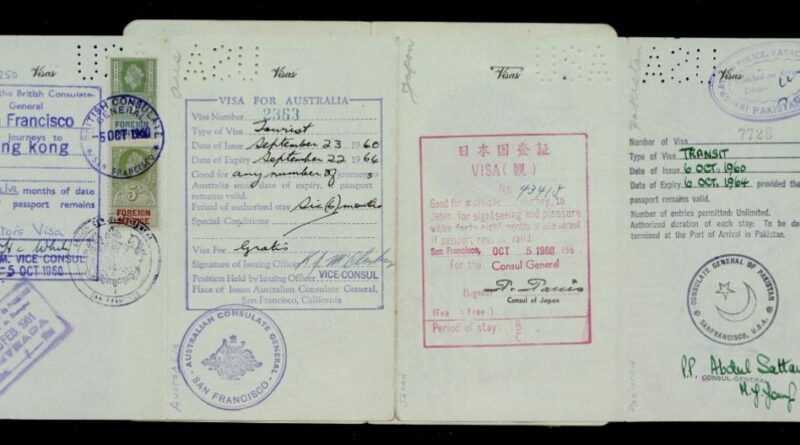 250
Visas
the British Consulate-
General
San Francisco
journeys to
Hong kong
months of date
passport remains
Visa
H.M. VICE CONSUL
5 OCT 1960
FEB. 1961
BRITISH CONSULATE GENERAL
5 OCT 1960
SAN FRANCISCO
FOREIGN
5s
FOREIGN
SERVICE
Visas
VISA FOR AUSTRALIA
Visa Number 2363
Type of Visa Tourist
Date of Issue September 23 1960
Date of Expiry September 22 1966
Good for any number of journeys to
Australia until date of expiry, if passport
remains valid.
Period of authorised stay Six (6) months
Special Conditions
Visa Fee Gratis
Signature of Issuing Officer
Position Held by Issuing Officer VICE-CONSUL
Place of Issue: Australian Consulate General,
San Francisco, California
AUSTRALIAN CONSULATE GENERAL
SAN FRANCISCO
AUSTRALIA
Japan
Visas
日本国査証
VISA (観)
No.
Good for multiple journey, to
Japan for sightseeing and pleasure
within forty eight months of date hereof
if passport remains valid.
San Francisco, OCT 5 1960 196
For the Consul General
(Signed)
Consul of Japan
(Fee: Free)
Period of stay: B
C
JAPAN
Pakistan
Visas
PAKISTAN
Number of Visa 7728
Type of Visa TRANSIT
Date of Issue 6 OCT, 1960
Date of Expiry 6 OCT, 1964 provided the
passport remains valid.
Number of entries permitted: Unlimited.
Authorized duration of each stay: To be de-
termined at the Port of Arrival in Pakistan.
CONSULATE GENERAL OF PAKISTAN
SANFRANCISCO, U.S.A.
P.P. Abdul Sattar
CONSUL-GENERAL
PAKISTAN